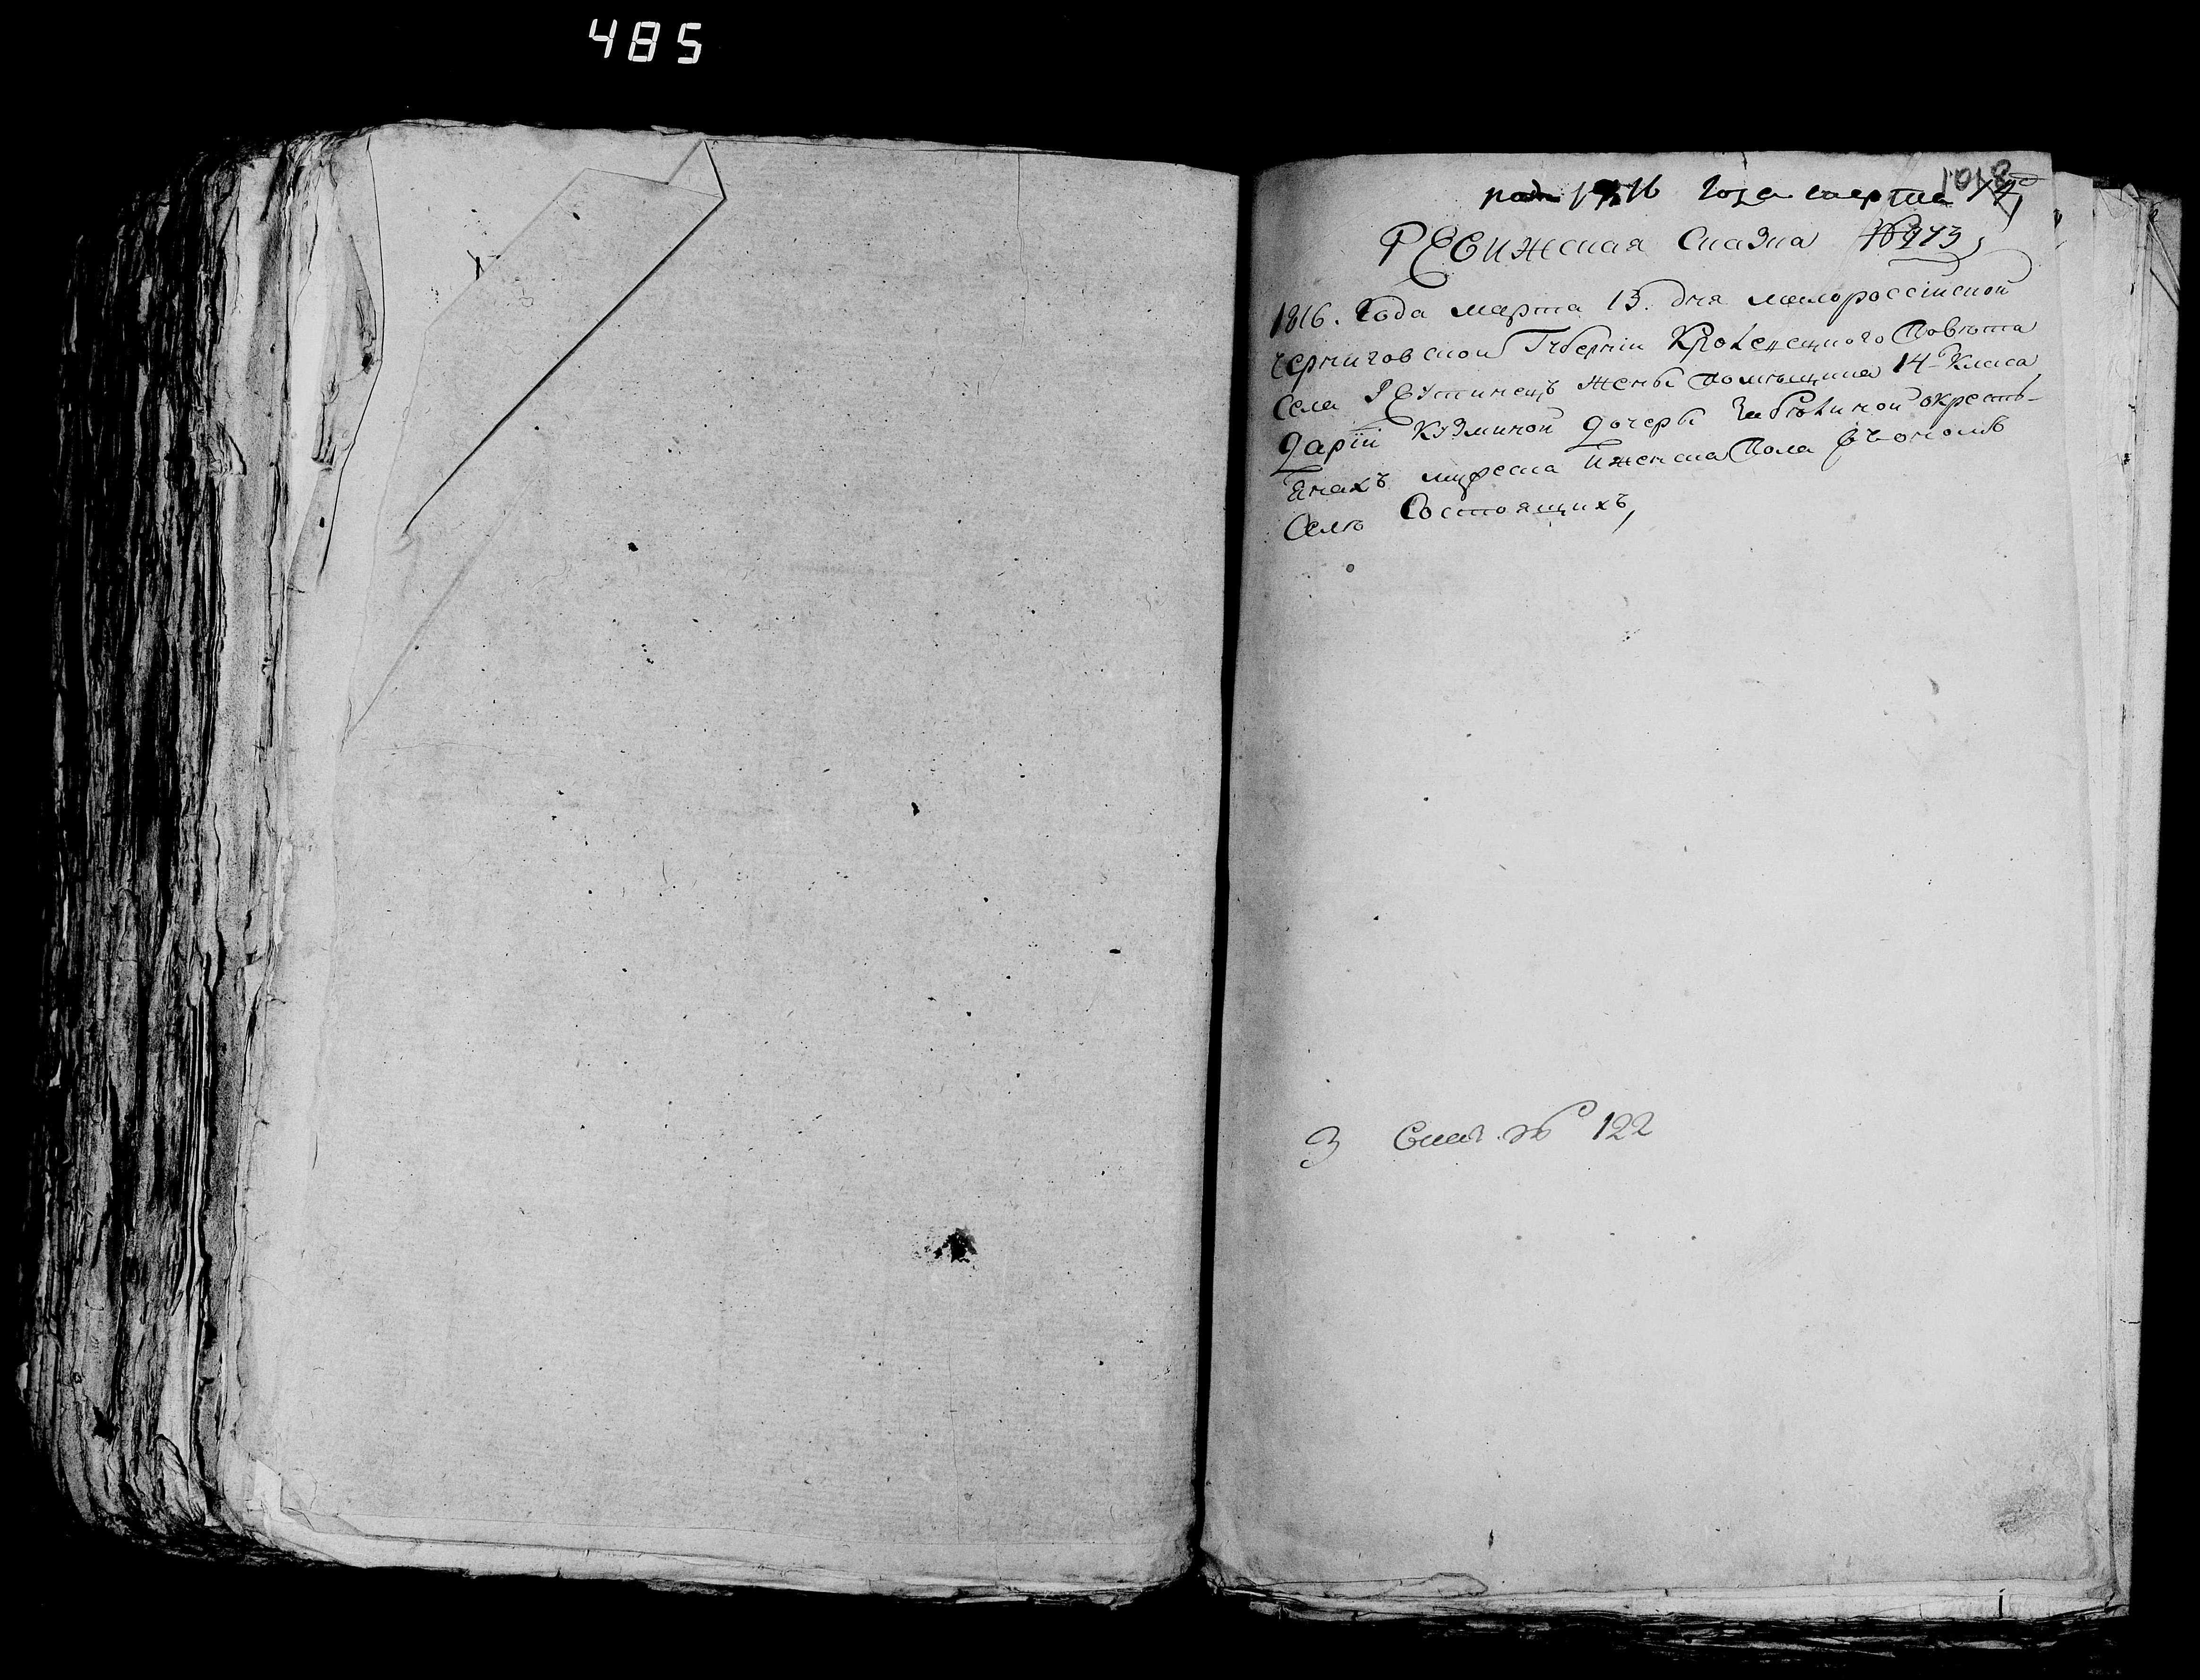 485
1018
1816 года марта
РЕвижская Сказка № 973,
1816. Года марта 13. дня малороссійской
черниговской Губерніи Кролевецкого Повѣта
Села РЕутинецъ жены помѣщика 14 Класа
Даріи Кузминой дочеры окресть-
янахъ мужеска Иженска Пола въономъ
Селѣ Состоящихъ,
3 № 122